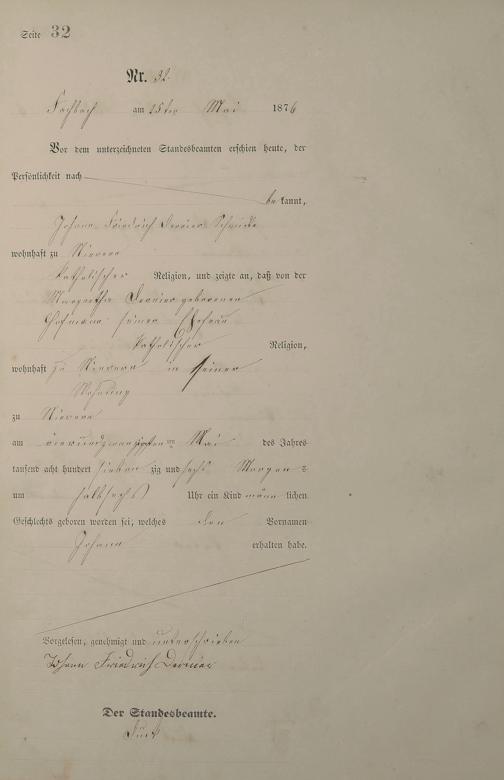 Seite 32
Nr. 32.
Fachbach am 25ten Mai 1876
Vor dem unterzeichneten Standesbeamten erschien heute, der
Persönlichkeit nach
bekannt,
Johann Friedrich
wohnhaft zu Nievern
katholischer Religion, und zeigte an, daß von der
Margaretha geborenen
Hofmann seiner Ehefrau
katholischer Religion,
wohnhaft zu Nievern in seiner
Wohnung
zu Nievern
am vierundzwanzigsten ten Mai des Jahres
tausend acht hundert siebenzig und sechs Morgens
um halbsechs Uhr ein Kind männlichen
Geschlechts geboren worden sei, welches den Vornamen
Johann erhalten habe.
Vorgelesen, genehmigt und unterschrieben
Johann Friedrich
Der Standesbeamte.